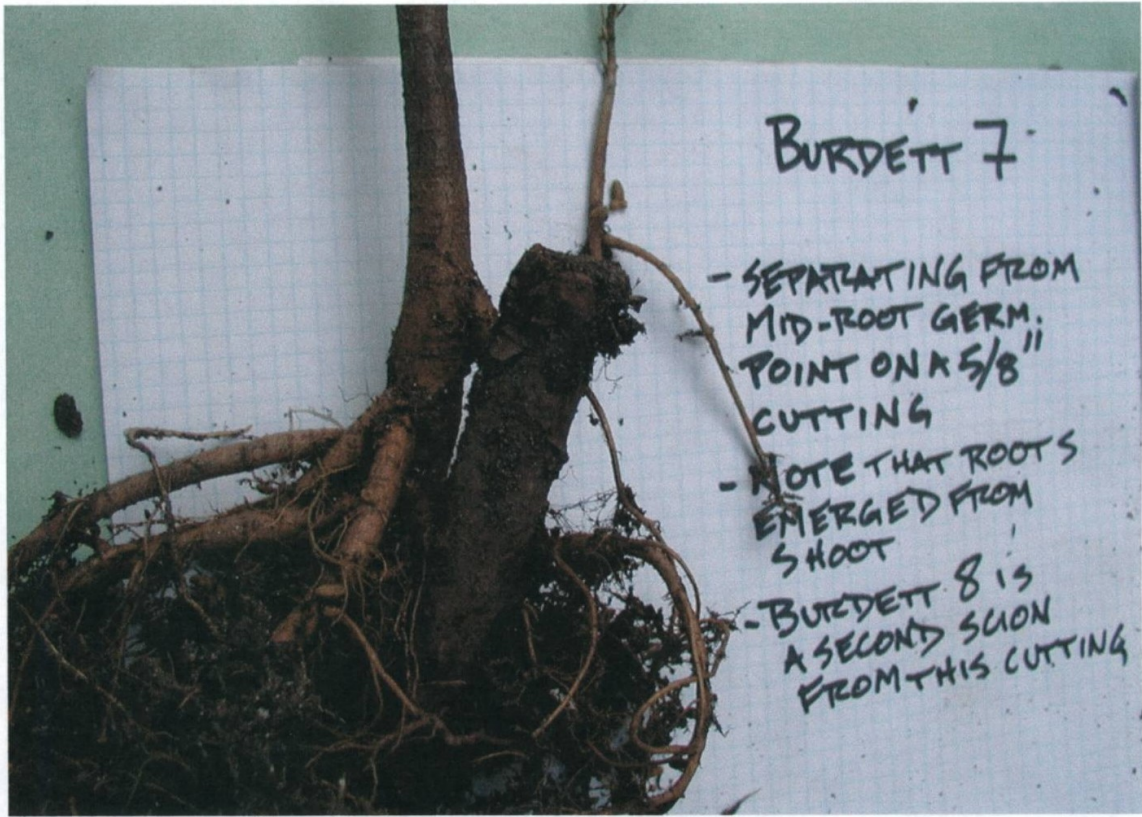 BURDETT 7
- SEPARATING FROM
MID-ROOT GERM.
POINT ON A 5/8"
CUTTING
- NOTE THAT ROOTS
EMERGED FROM
SHOOT
- BURDETT 8 is
A SECOND SCION
FROM THIS CUTTING